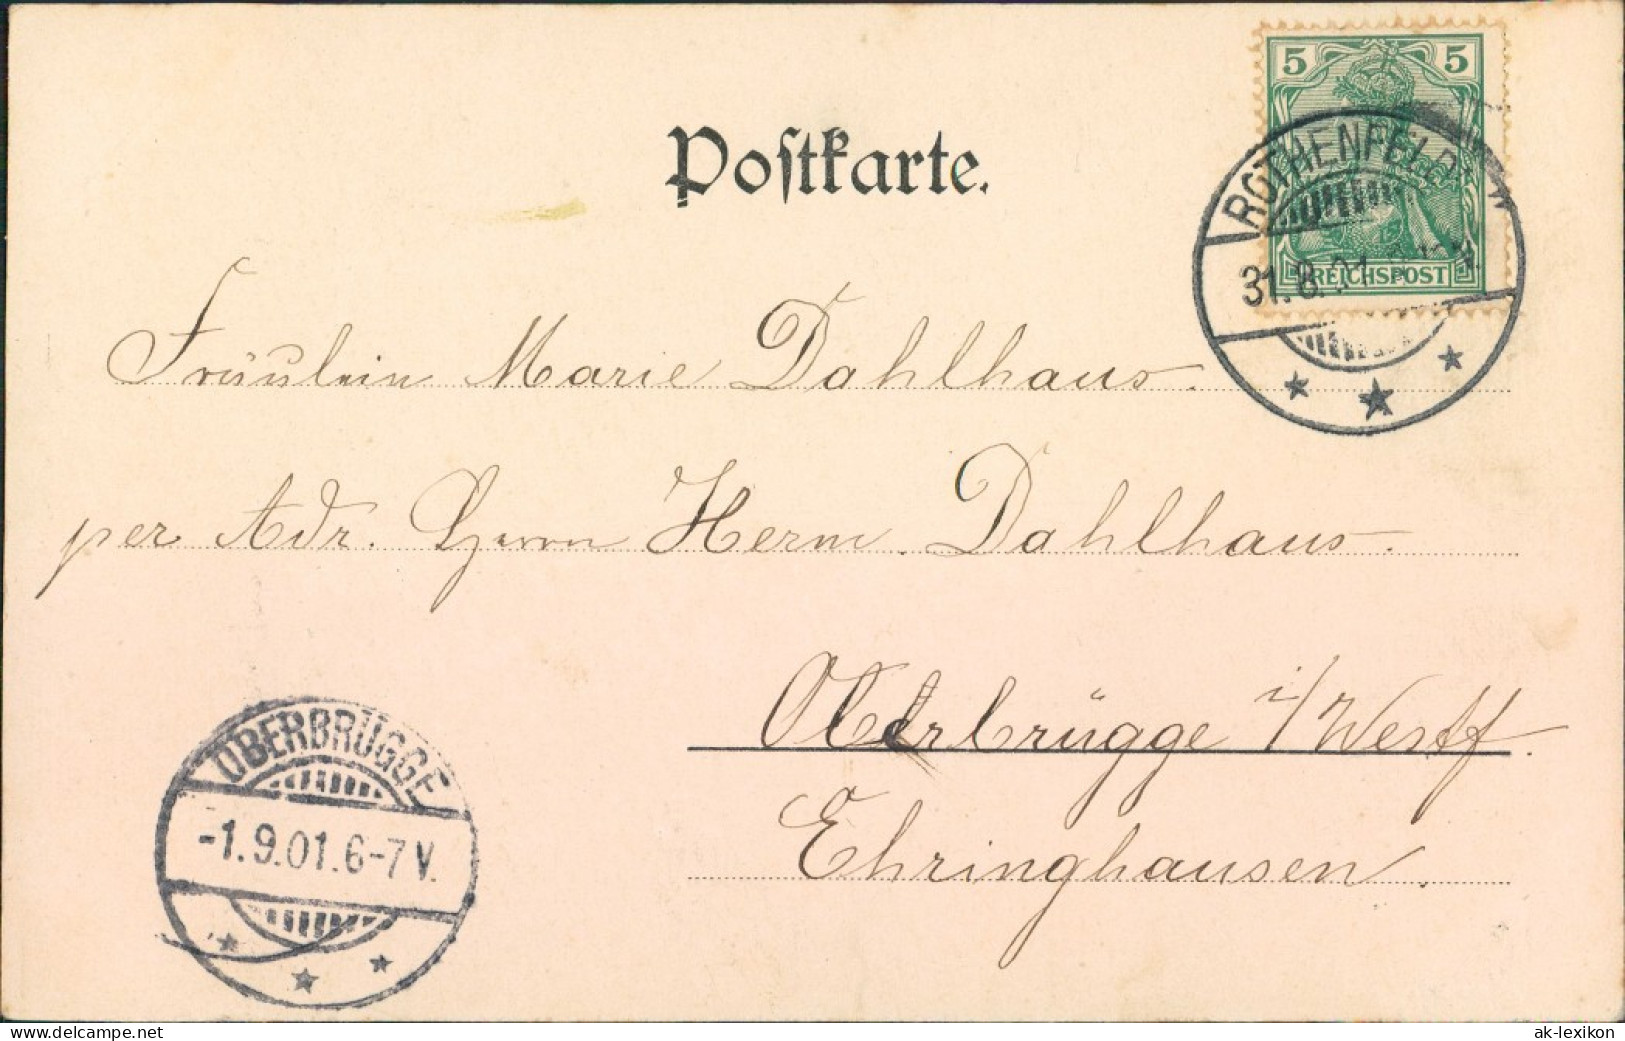 5 5
Postkarte.
ROTHENFELD
31.8.01
REICHSPOST
Fräulein Marie Dahlhaus.
per Adr. Herrn Herm. Dahlhaus.
Oberbrügge i/Westf.
Ehringhausen.
OBERBRÜGGE
-1.9.01.6-7 V.
www.delcampe.net
ak-lexikon